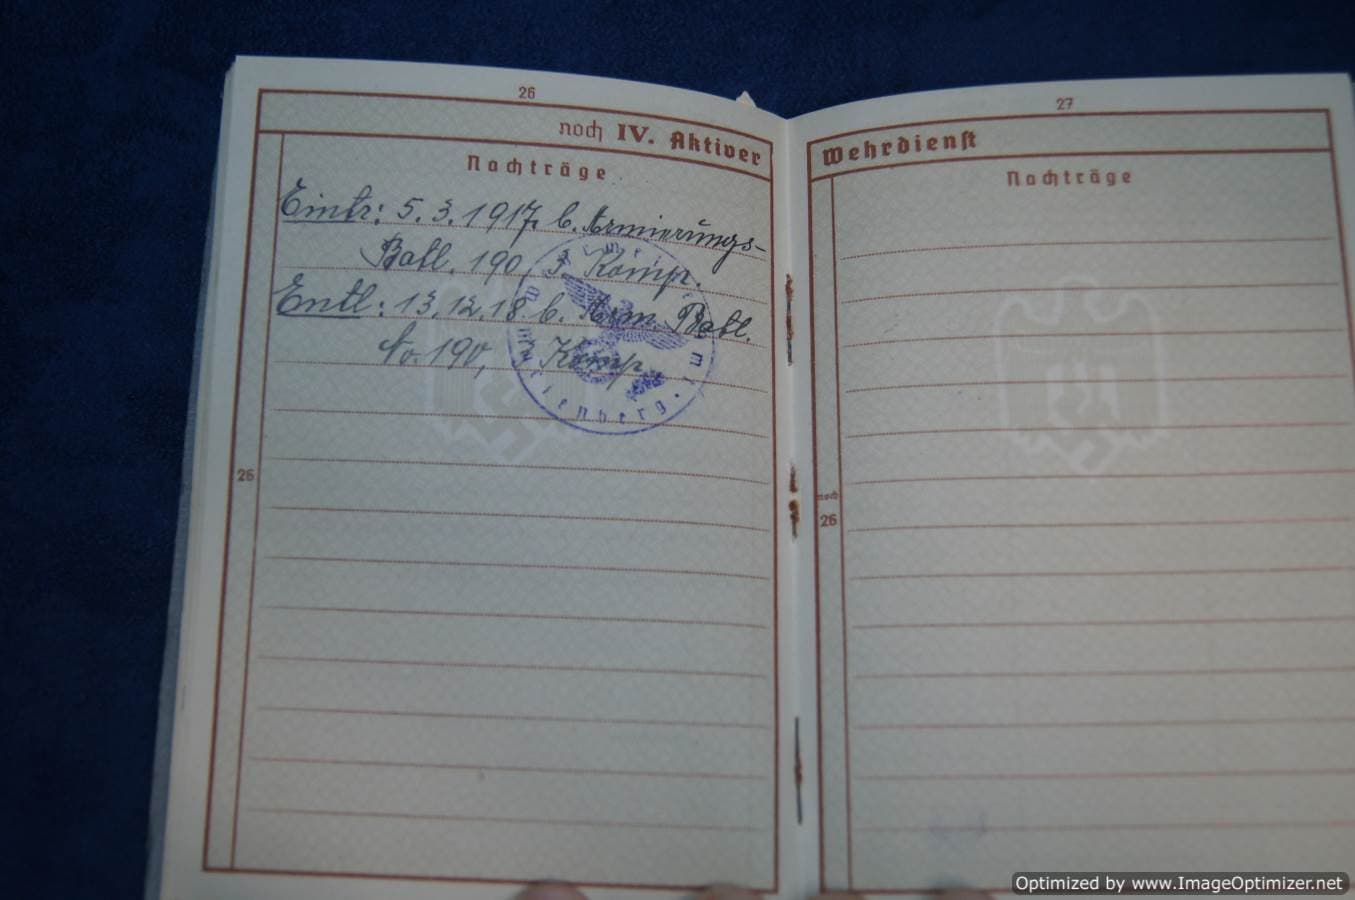 26
noch IV. Aktiver
Nachträge
Eintr: 5.3.1917. b. Armierungs-
Batl. 190, 3. Komp.
Entl: 13.12.18 b. Arm. Batl.
No. 190, 3 Komp.
26
27
Wehrdienst
Nachträge
noch
26
Optimized by www.ImageOptimizer.net